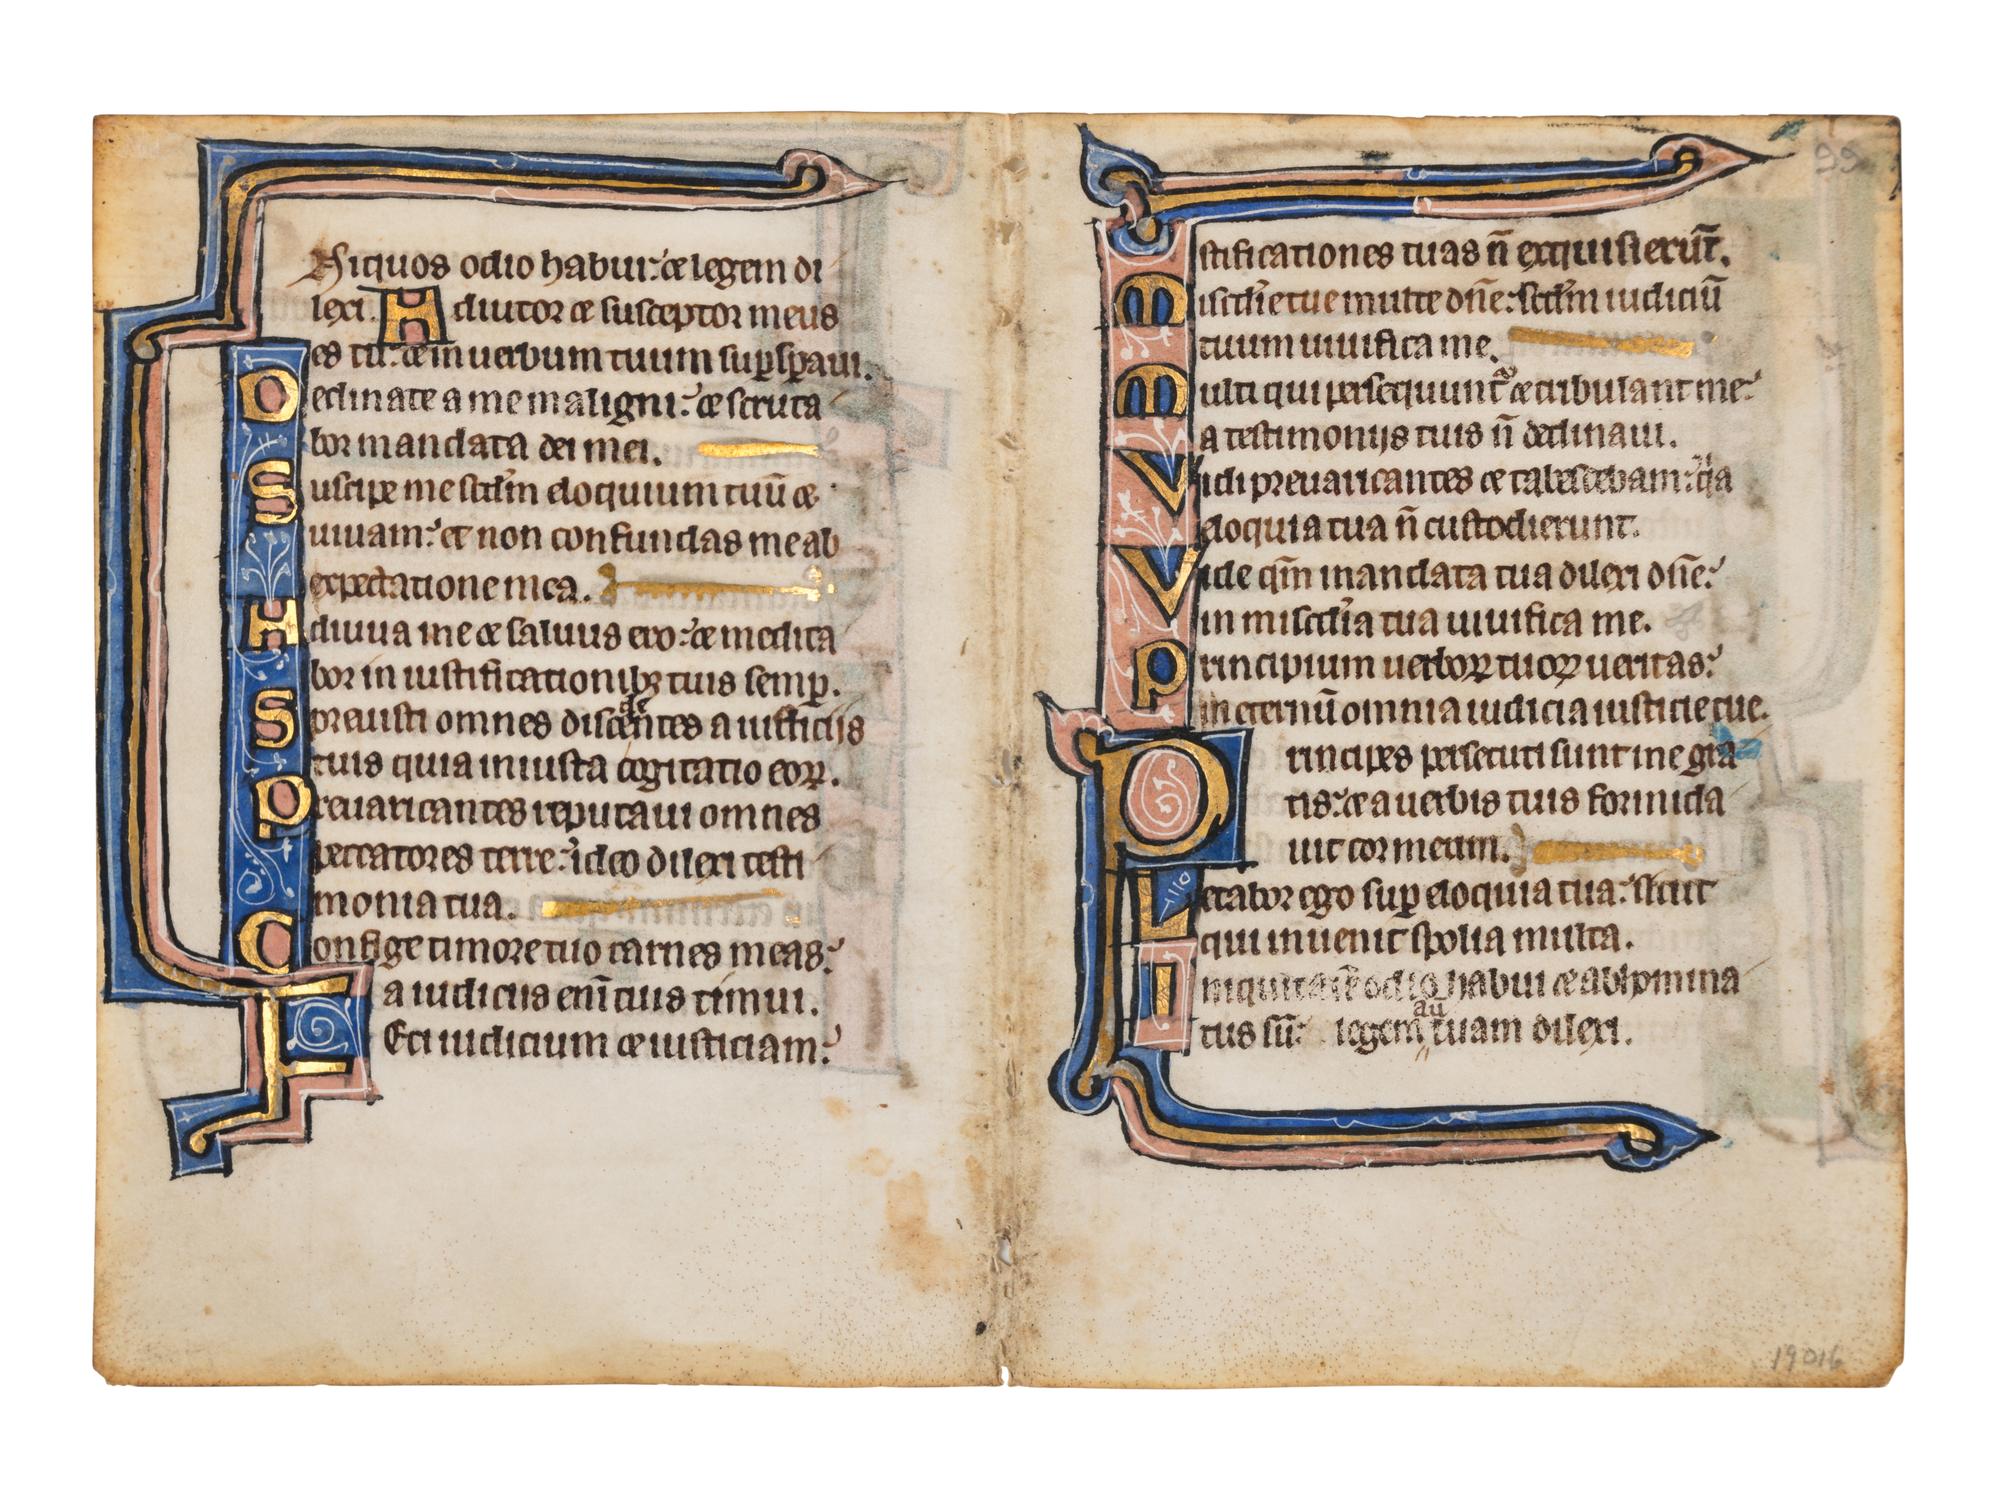 Niquos odio habui: ⁊ legem di
lexi. Adiutor ⁊ susceptor meus
es tu: ⁊ in uerbum tuum sup̱sp̱aui.
Declinate a me maligni: ⁊ scruta
bor mandata dei mei.
Suscipe me scd̄m eloquium tuū ⁊
uiuam: et non confundas me ab
expectatione mea.
Hdiuua me ⁊ saluus ero: ⁊ medita
bor in iustificationibꝫ tuis semp̱.
Spreuisti omnes discedentes a iusticijs
tuis quia iniusta cogitatio eoꝝ.
Preuaricantes reputaui omnes
peccatores terre: ideo dilexi testi
monia tua.
Confige timore tuo carnes meas:
a iudiciis eni̅ tuis timui.
Feci iudicium ⁊ iusticiam:
99
stificationes tuas n̄ exquisierūt.
Misc̄die tue multe dn̄e: scd̄m iudiciū
tuum uiuifica me.
Multi qui persequunt᷑ ⁊ tribulant me:
a testimonijs tuis n̄ declinaui.
Vidi preuaricantes ⁊ tabescebam: q̄a
eloquia tua n̄ custodierunt.
Vide qm̄ mandata tua dilexi dn̄e:
in misc̄dia tua uiuifica me.
Principium uerboꝝ tuoꝝ ueritas:
in eternū omnia iudicia iusticie tue.
Principes persecuti sunt me gra
tis: ⁊ a uerbis tuis formida
uit cor meum.
Letabor ego sup̱ eloquia tua: sicut
qui inuenit spolia multa.
Iniquitatē odio habui ⁊ abhomina
tus sū: legem au̅ tuam dilexi.
19016